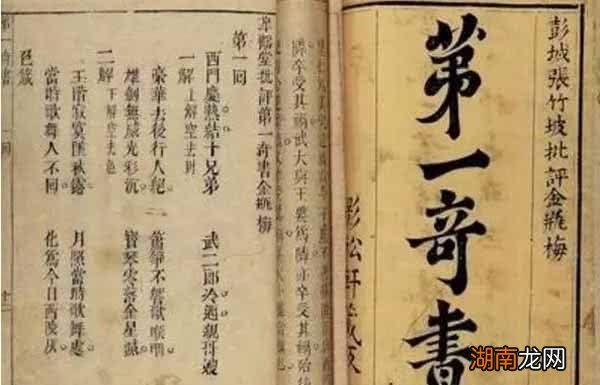 彭城張竹坡批評金瓶梅
第一奇書
影松軒
卒受其禍武大與王婆為隣亦卒受其禍
皐鶴堂批評第一奇書金瓶梅
第一回
西門慶熱結十兄弟 武二郎冷遇親哥嫂
一解 上解空去財
豪華去後行人絕 簫箏不響歌喉咽
雄劍無威光彩沉 寶琴零落金星滅
二解 下解空去色
玉階寂寞墜秋露 月照當時歌舞處
當時歌舞人不回 化為今日西陵灰
色箴
湖南龙网